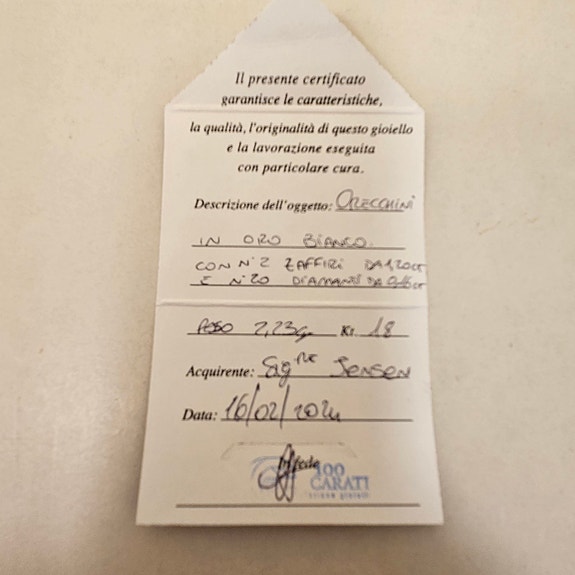 Il presente certificato
garantisce le caratteristiche,
la qualità, l'originalità di questo gioiello
e la lavorazione eseguita
con particolare cura.
Descrizione dell'oggetto: ORECCHINI
IN ORO BIANCO.
CON N° 2 ZAFFIRI DA 1,20 ct
E N° 20 DIAMANTI DA 0,16 ct
PESO 2,23 gr Kt 18
Acquirente: Sig.re JENSEN
Data: 16/02/2024
In fede
100
CARATI